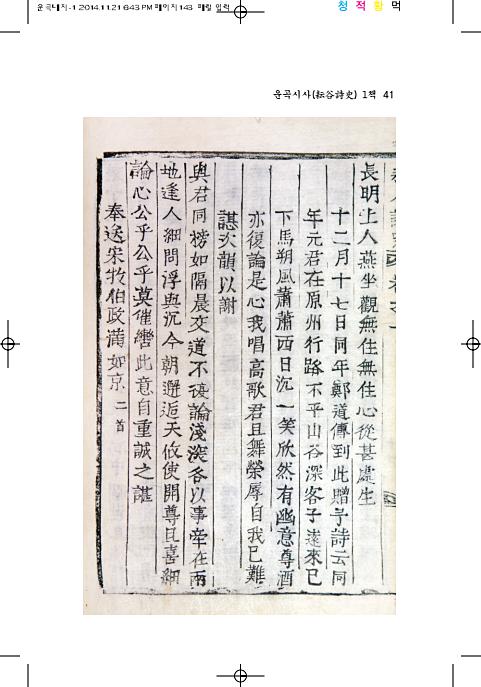 운곡대지-1 2014.11.21 6:43 PM 페이지143 매일 입력
청 적 황 먹
운곡시사(耘谷詩史) 1책 41
長明上人燕坐觀無住無住心從甚處生
十二月十七日同年鄭道傳到此贈予詩云同
年元君在原州行路不平山谷深客子遠來已
下馬朔風蕭蕭西日沉一笑欣然有幽意尊酒
亦復論是心我唱高歌君且舞榮辱自我已難
諶次韻以謝
與君同榜如隔晨交道不復論淺深各以事牽在兩
地逢人細問浮與沉今朝邂逅天攸使開尊且喜細
論心公乎公乎莫催轡此意自重誠之諶
奉送宋牧伯政滿如京 二首